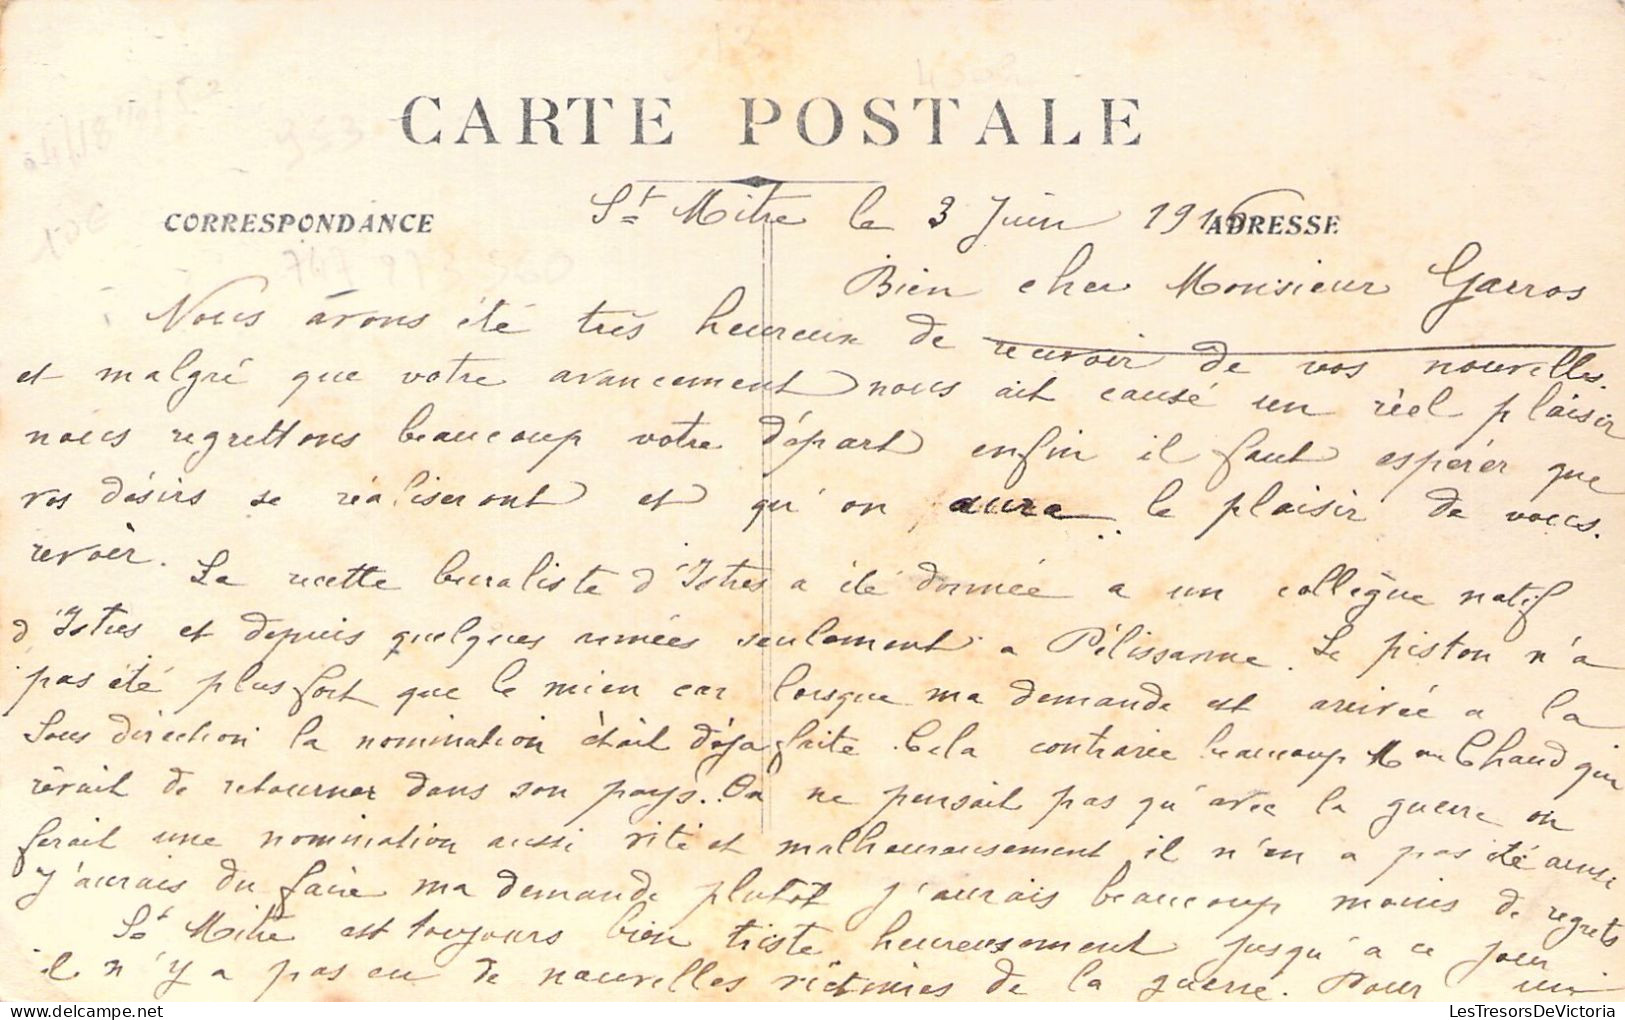 CARTE POSTALE
CORRESPONDANCE
ADRESSE
St Mitre le 3 Juin 1916
Bien cher Monsieur Garros
Nous avons été très heureux de recevoir de vos nouvelles.
et malgré que votre avancement nous ait causé un réel plaisir
nous regrettons beaucoup votre départ enfin il faut espérer que
vos désirs se réaliseront et qu'on aura le plaisir de vous.
revoir.
La recette buraliste d'Istres a été donnée a un collègue natif
d'Istres et depuis quelques années seulement a Pélissanne. Le piston n'a
pas été plus fort que le mien car lorsque ma demande est arrivée a la
Sous direction la nomination était déja faite. Cela contrarie beaucoup Mme Chaud qui
rêvait de retourner dans son pays. On ne pensait pas qu'avec la guerre on
ferait une nomination aussi vite et malheureusement il n'en a pas été ainsi
J'aurais du faire ma demande plutôt j'aurais beaucoup moins de regrets
St Mitre est toujours bien triste heureusement jusqu'a ce jour
il n'y a pas eu de nouvelles victimes de la guerre. Pour
LesTresorsDeVictoria